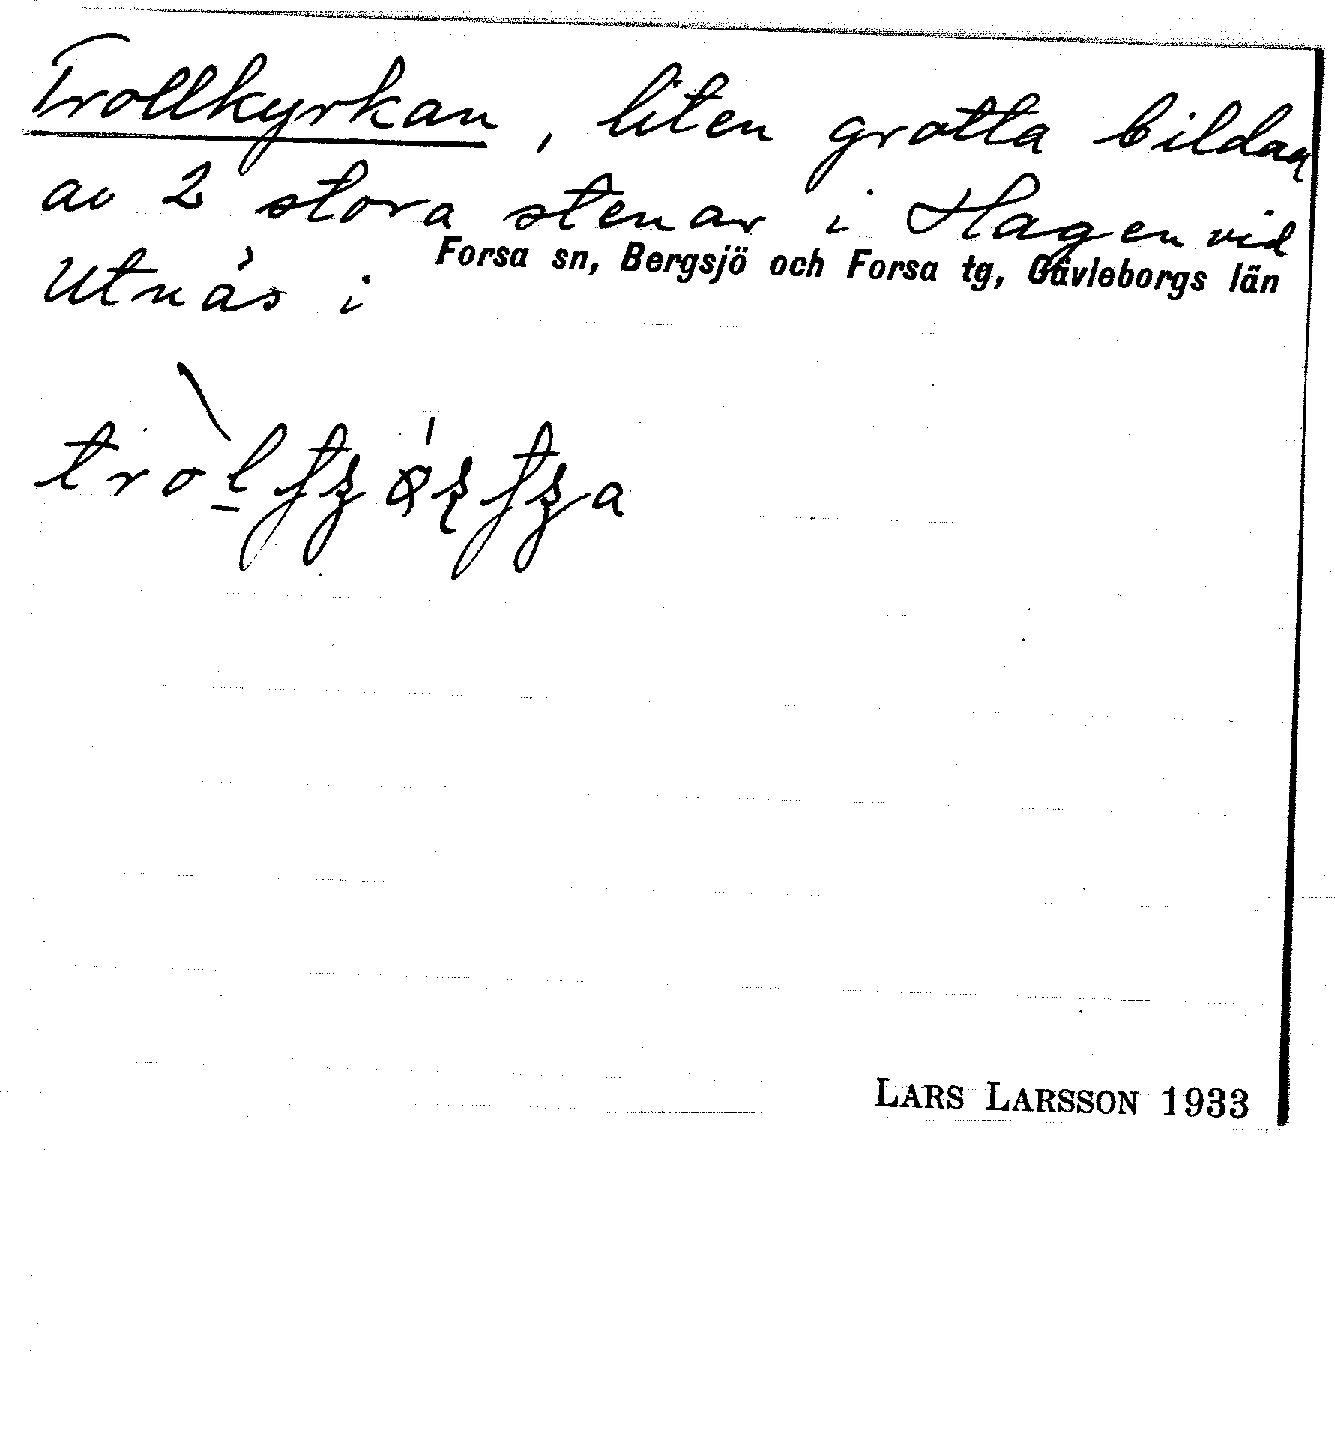 Trollkyrkan, liten grotta bildad
av 2 stora stenar i Hagen vid
Utnäs i Forsa sn, Bergsjö och Forsa tg, Gävleborgs län
LARS LARSSON 1933